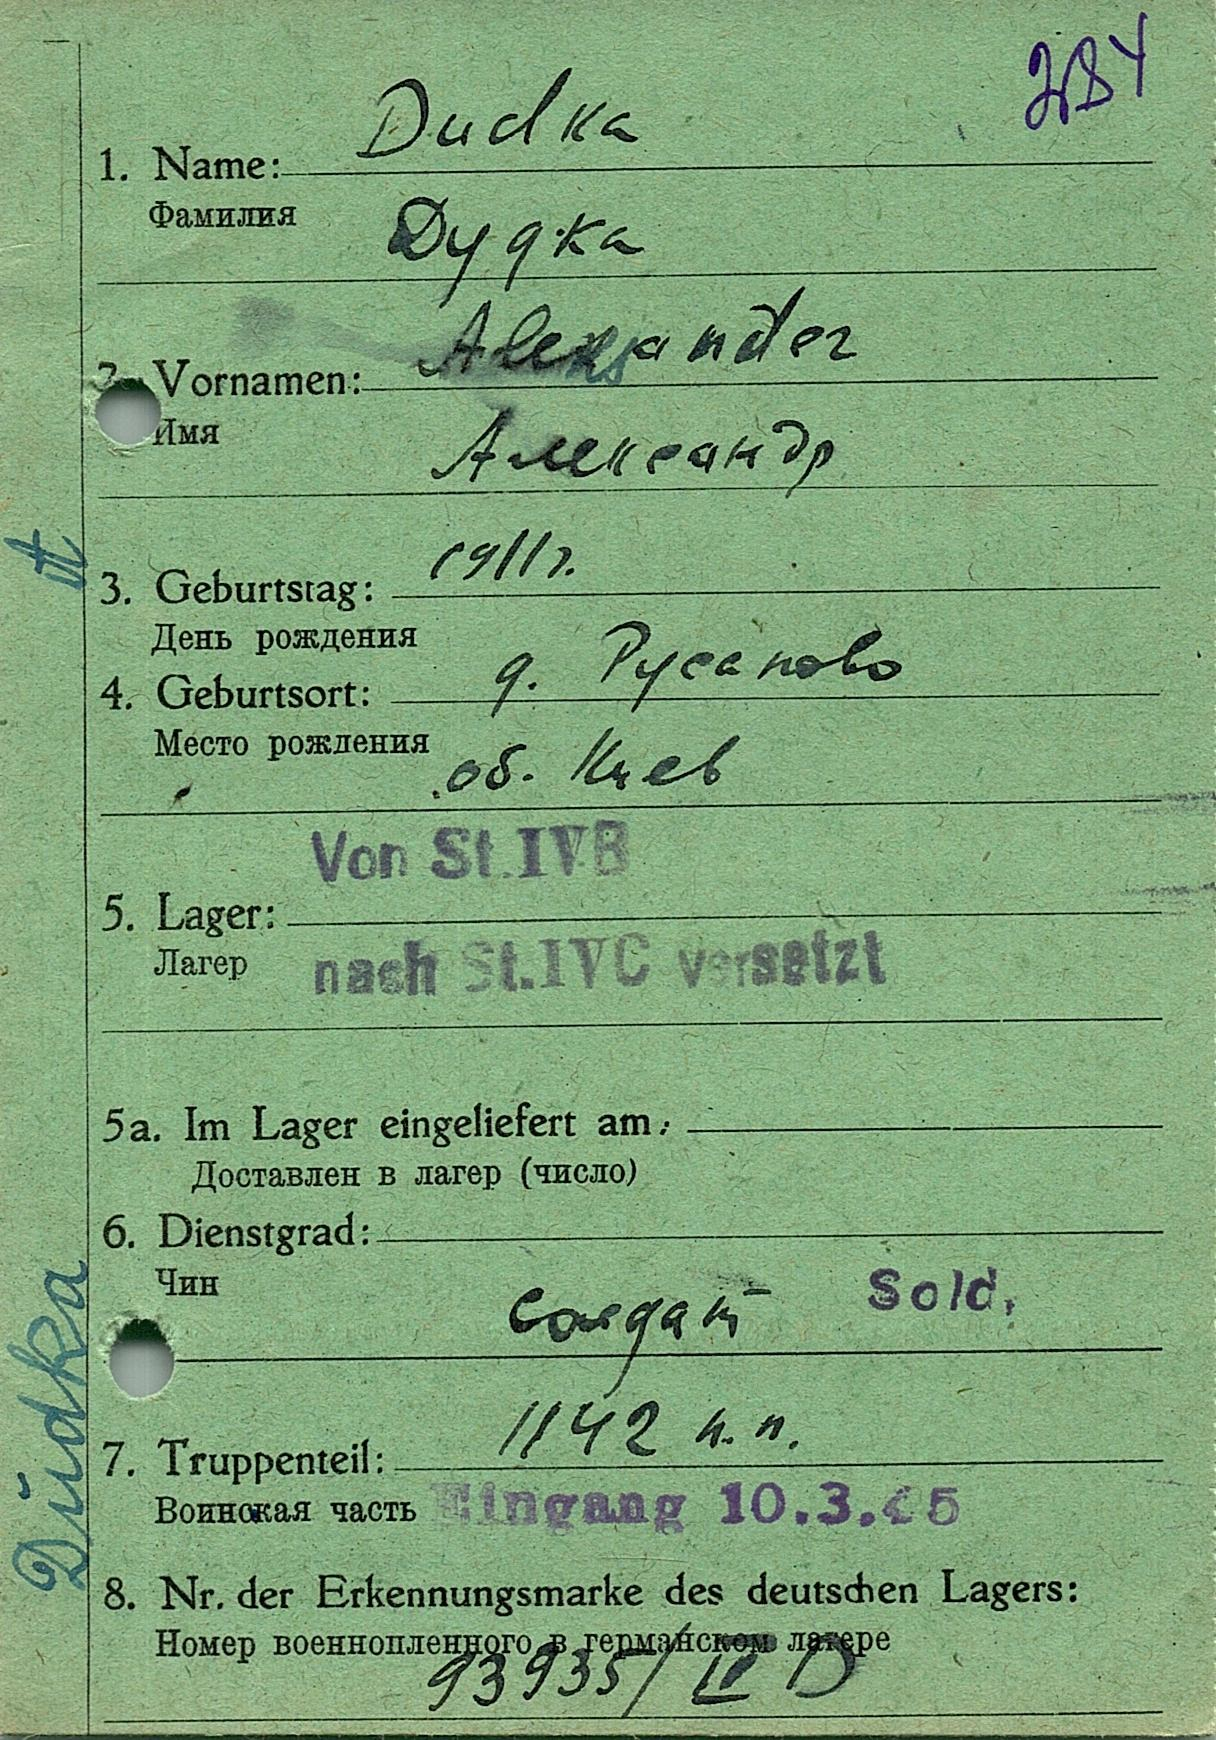 284
Dudka
1. Name:
Фамилия
Дудка
Alexander
2. Vornamen:
Имя
Александр
1911г.
3. Geburtstag:
День рождения
д. Русаново
4. Geburtsort:
Место рождения
об. Киев
Von St. IVB
5. Lager:
Лагер
nach St. IVC versetzt
5a. Im Lager eingeliefert am:
Доставлен в лагер (число)
6. Dienstgrad:
Чин
солдат Sold.
1142 п. п.
7. Truppenteil:
Воинская часть
Eingang 10.3.45
8. Nr. der Erkennungsmarke des deutschen Lagers:
Номер военнопленного в германском лагере
93935/ D
Dŭdka